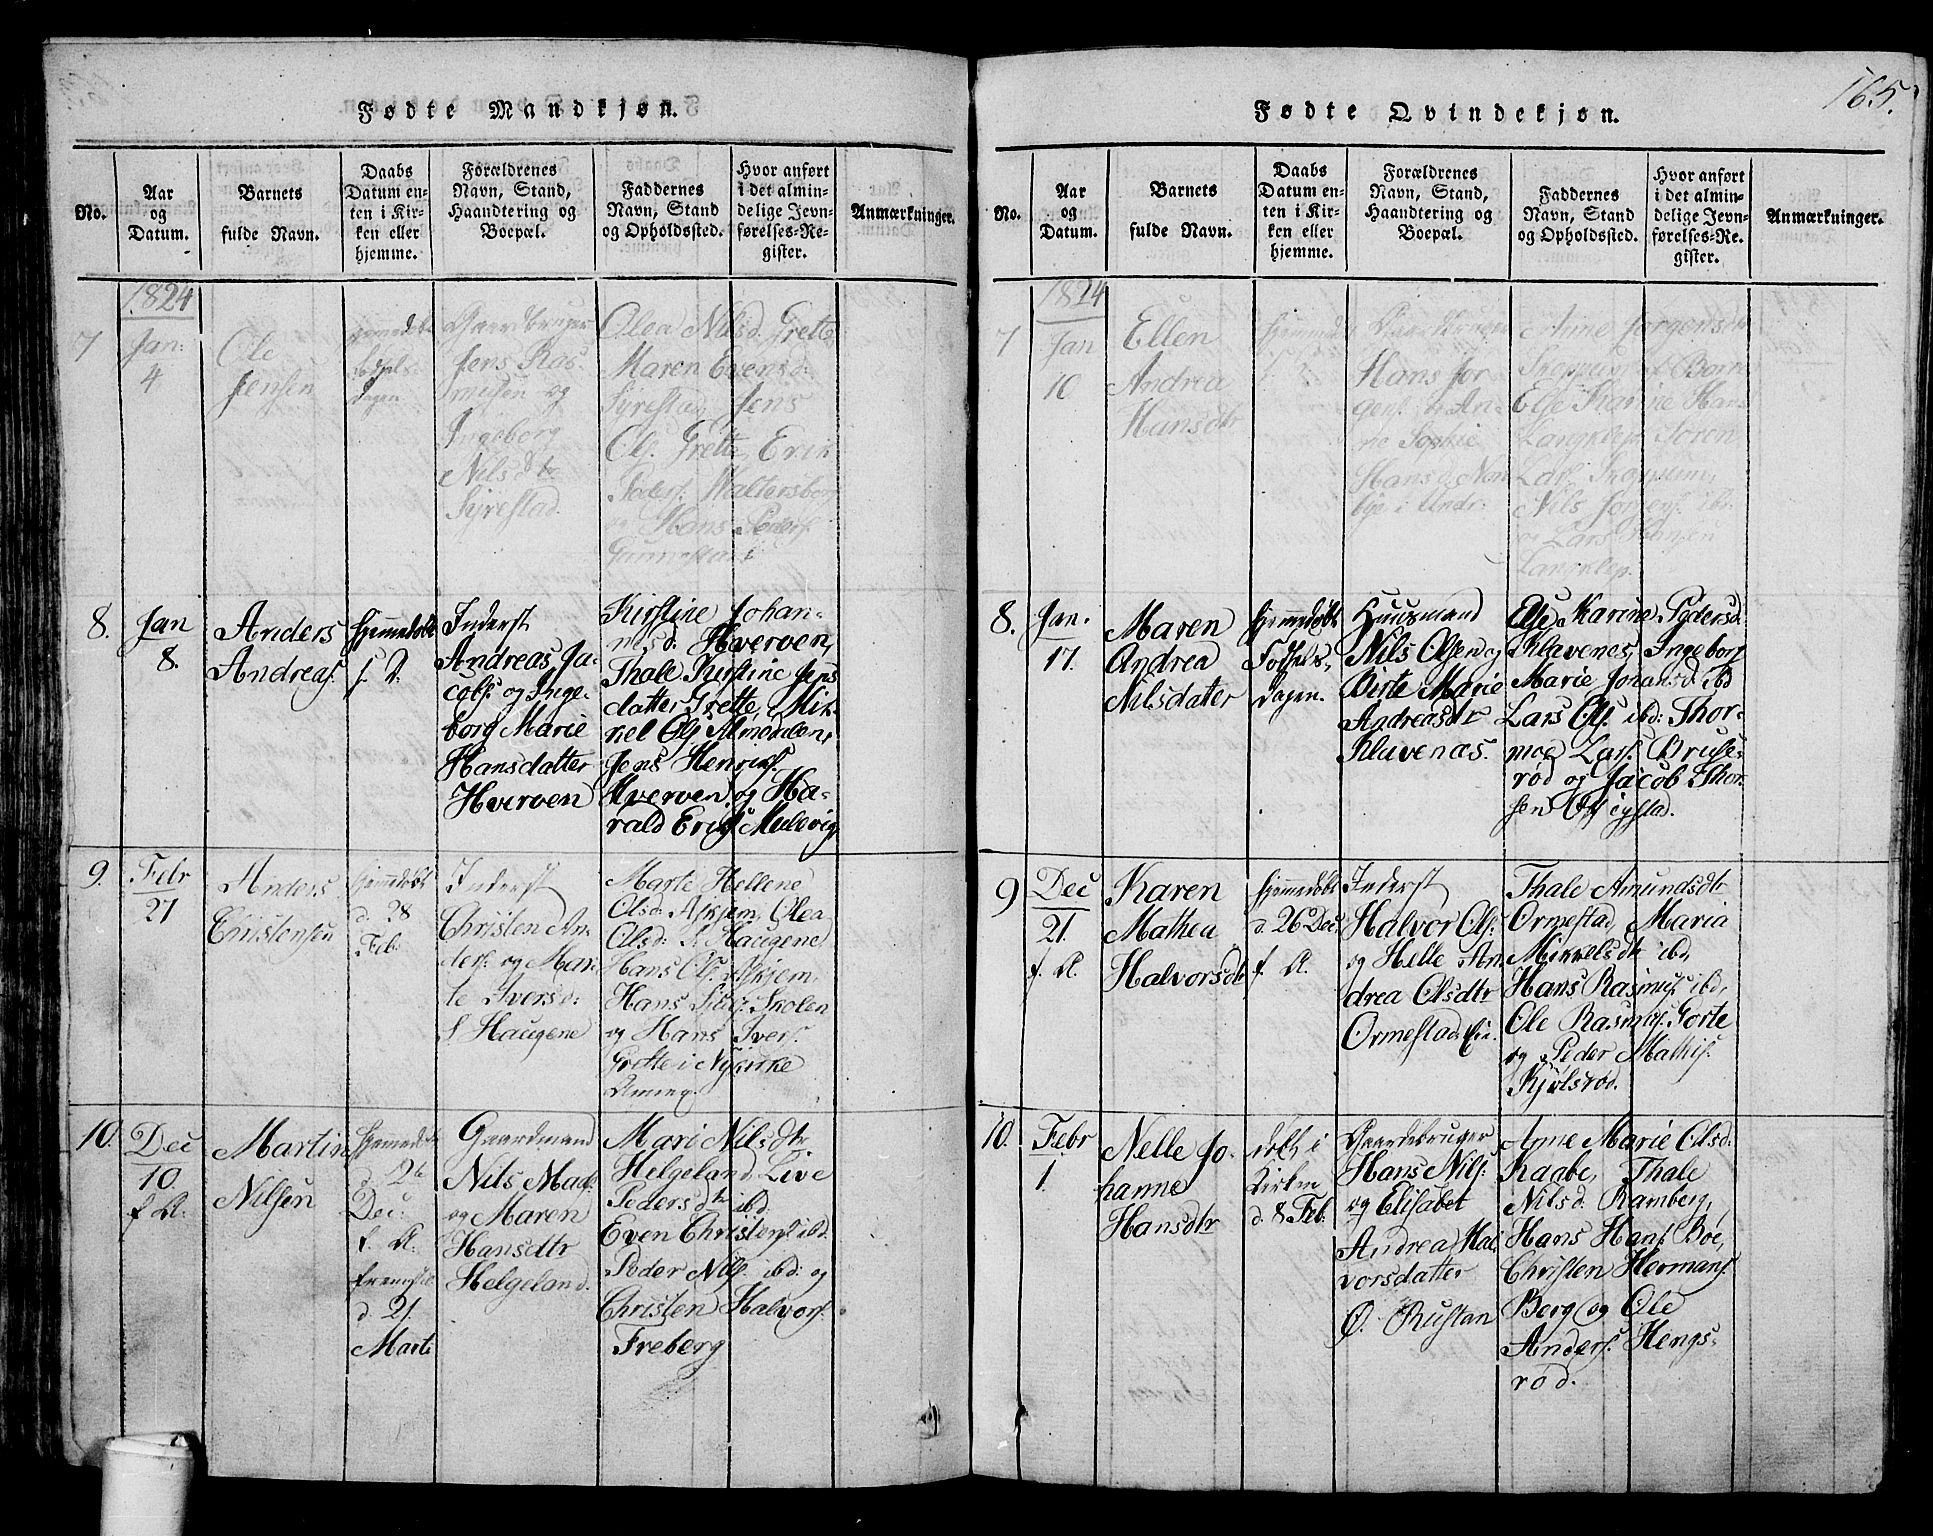 165.
Fødte Mandkjøn.
No.
Aar
og
Datum.
Barnets
fulde Navn.
Daabs
Datum en-
ten i Kir-
ken eller
hjemme.
Forældrenes
Navn, Stand,
Haandtering og
Boepæl.
Faddernes
Navn, Stand
og Opholdssted.
Hvor anført
i det almin-
delige Jevn-
førelses-Re-
gister.
Anmærkninger.
1824
7
Jan:
4
Ole
Jensen
hjemmedøbt
Fødsels
dagen
Gaardbruger
Jens Ras-
musen og
Ingeborg
Nilsdtr
Olea Nilsd. Grette
Maren Evensd:
Jens
Ols. Grette, Erik
Peders.
og Hans Peders.
8.
Jan
8.
Anders
Andreas.
hjemmedøbt
f. D.
Inderst
Andreas Ja-
cobs. og Inge-
borg Marie
Hansdatter
Hverven
Kirstine Johan-
nesd. Hverven,
Thale Kirstine Jens
datter Grette, Mik-
kel Ols. Almedalen,
Jens Henriks.
Hverven og Ha-
rald Eriks. Mulevig
9.
Febr
27
Anders
Christensen
hjemmedøbt
d. 28
Feb:
Inderst
Christen An-
ders. og Mar-
te Iversd:
S Haugene
Marte Hellene
Olsd: Askjem, Olea
Olsd: S Haugene
Hans Ols. Askjem,
Hans Skolen
og Hans Ivers.
Grette i Nykirke
Anneg.
10.
Dec
10.
f. A:
Martin
Nilsen
hjemmedøbt
d. 26
Dec:
f. A:
fremstil
d 21
Marti
Gaardmand
Nils Mads.
og Maren
Hansdtr
Helgeland.
Mari Nilsdtr
Helgeland. Live
Pedersdtr ibd:
Even Christens. ibd.
Peder Nils. ibd: og
Christen Halvors.
Freberg
Fødte Qvindekjøn.
No.
Aar
og
Datum.
Barnets
fulde Navn.
Daabs
Datum en-
ten i Kir-
ken eller
hjemme.
Forældrenes
Navn, Stand,
Haandtering og
Boepæl.
Faddernes
Navn, Stand
og Opholdssted.
Hvor anført
i det almin-
delige Jevn-
førelses-Re-
gister.
Anmærkninger.
1824
7
Jan
10
Ellen
Andrea
Hansdtr
Gaardbruger
Hans Jør
gens. An-
ne Sophie
Hansd.
bye i Andr:
Anne Jørgensdtr
Skoppum
Else Karine Han
Langklep Søren
Lars. Skoppum,
Nils Jørgens. ibd.
og Lars Hansen
Langklep.
8.
Jan.
17.
Maren
Andrea
Nilsdater
hjemmedøbt
Fødsels-
dagen.
Huusmand
Nils Olsen og
Birte Marie
Andreasdtr
Klavenæs.
Else Karine Pedersd.
Klavenes, Ingeborg
Marie Johansd. ibd
Lars Ols. ibd: Thor-
moe Lars. Bruse-
rød og Jacob Thor-
sen
9
Dec
21.
f. A.
Karen
Mathea
Halvorsdtr
hjemmedøbt
d. 26 Dec
f. A.
Inderst
Halvor Ols.
og Helle An-
drea Olsdtr
Ormestad Eie.
Thale Amundsdtr
Ormestad, Maria
Mikkelsdtr ibd,
Hans Rasmus. ibd,
Ole Rasmus. Gorte
og Peder Mathis.
Kjølsrød.
10.
Febr
1.
Nelle Jo-
hanne
Hansdtr
døbt i
Kirken
d. 8 Feb:
Gaardebruger
Hans Nils:
og Elisabet
Andrea Hal-
vorsdatter
Ø. Rustan
Anne Marie Olsd:
Raabe, Thale
Nilsd. Ramberg,
Hans Hans. Boe,
Christen Hermans.
Berg og Ole
Anders. Hengs-
rød.